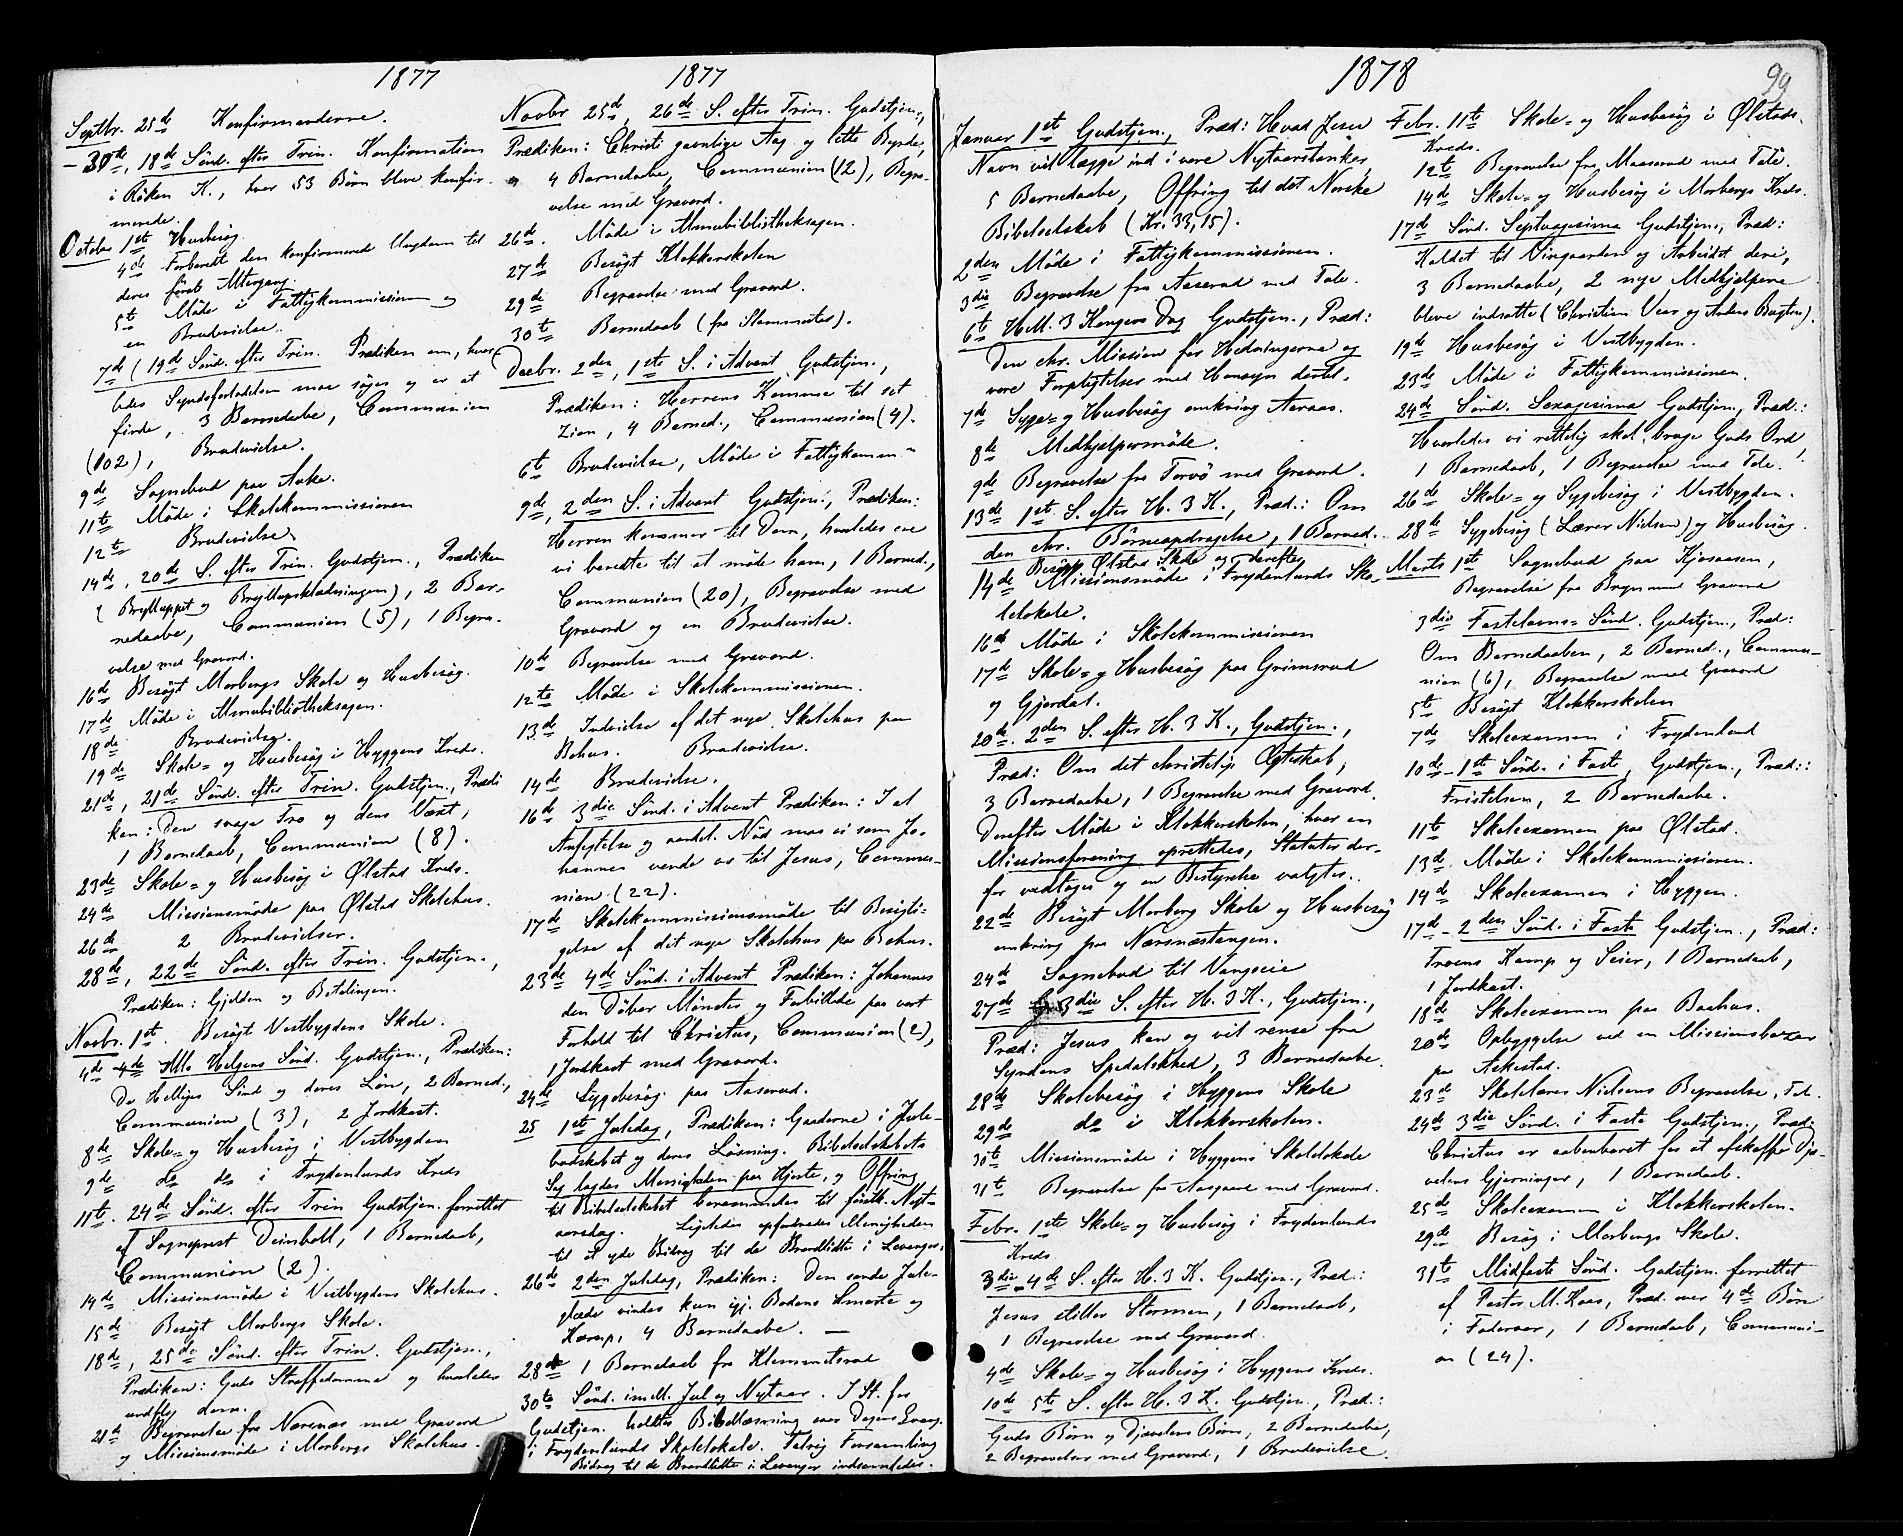 1877
Septbr. 25de Konfirmanderne.
- 30te, 18de Sönd. efter Trin. Konfirmation
i Röken K., hvor 53 Börn bleve konfir-
merede.
October 1ste Husbesög.
4de Forberedt den konfirmerede Ungdom til
deres förste Altergang.
5te Möde i Fattigkommissionen og
en Brudevielse.
7de (19de Sönd. efter Trin. Prædiken om, hvor-
ledes Syndsforladelsen maa söges og er at
finde, 3 Barnedaabe, Communion
(102), Brudevielse.
9de Sognebud paa Aake.
11te Möde i Skolekommissionen
12te Brudevielse
14de, 20de S. efter Trin. Gudstjen., Prædiken
(Brylluppet og Bryllupsklædningen), 2 Bar-
nedaabe, Communion (5), 1 Begra-
velse med Gravord.
16de Besögt Morbergs Skole og Husbesög.
17de Möde i Almuebibliotheksagen.
18de Brudevielse.
19de Skole- og Husbesög i Hyggens Kreds.
21de, 21de Sönd. efter Trin. Gudstjen., Prædi-
ken: Den svage Tro og dens Væxt,
1 Barnedaab, Communion (8).
23de Skole- og Husbesög i Ølstad Kreds.
24de Missionsmöde paa Ølstad Skolehus.
26de 2 Brudevielser.
28de, 22de Sönd. efter Trin. Gudstjen.,
Prædiken: Gjelden og Betalingen.
Novbr. 1st. Besögt Vestbygdens Skole.
4de Alle Helgens Sönd. Gudstjen., Prædiken:
De Helliges Sind og deres Lön, 2 Barned.,
Communion (3), 2 Jordkast.
8de Skole- og Husbesög i Vestbygden
9de do do i Frydenlunds Kreds
11te. 24de Sönd. efter Trin Gudstjen. forrettet
af Sogneprest Deinboll, 1 Barnedaab,
Communion (2).
14de Missionsmöde i Vestbygdens Skolehus.
15de Besögt Morbergs Skole.
18de, 25de Sönd. efter Trin. Gudstjen.,
Prædiken: Guds Straffedomme og hvorledes
undfly dem.
21de Begravelse fra Nærsnæs med Gravord
og Missionsmöde i Morbergs Skolehus.
1877
Novbr 25de, 26de S. efter Trin. Gudstjen.,
Prædiken: Christi gavnlige Aag og lette Byrde,
4 Barnedaabe, Communion (12), Begra-
velse med Gravord.
26de. Möde i Almuebibliotheksagen.
27de Besögt Klokkerskolen
29de Begravelse med Gravord.
30te Barnedaab (fra Slemmestad).
Decbr. 2den, 1ste S. i Advent Gudstjen.,
Prædiken: Herrens Komme til sit
Zion, 4 Barned., Communion (4).
6te Brudevielse, Möde i Fattigkomm.-
9de, 2den S. i Advent Gudstjen., Prædiken:
Herren kommer til Dom, hvorledes ere
vi beredte til at möde ham, 1 Barned.,
Communion (20), Begravelse med
Gravord og en Brudevielse.
10de Begravelse med Gravord.
12te Möde i Skolekommissionen.
13de Indvielse af det nye Skolehus paa
Bohus. Brudevielse.
14de Brudevielse.
16de 3die Sönd. i Advent Prædiken: I al
Anfegtelse og aandel. Nöd maa vi som Jo-
hannes vende os til Jesus, Commu-
nion (22).
17de Skolekommissionsmöde til Besigti-
gelse af det nye Skolehus paa Bohus.
23de 4de Sönd. i Advent Prædiken: Johannes
den Döber Mönster og Forbillede paa vort
Forhold til Christus, Communion (2),
1 Jordkast med Gravord.
24de Sygebesög paa Aaserud.
25 1ste Juledag, Prædiken: Gaaderne i Jule-
budskabet og deres Lösning. Bibelselskabets
Sag lagdes Menigheden paa Hjerte, og Offring
til Bibelselskabet berammedes til förstk. Nyt-
aarsdag. Ligeledes opfordredes Menigheden
til at yde Bidrag til de Brandlidte i Levanger.
26de 2den Juledag, Prædiken: Den sande Jule-
glæde vindes kun igj. Bodens Smerte og
Kamp, 4 Barnedaabe. —
28de 1 Barnedaab fra Klemmetsrud
30te Sönd. imell. Jul og Nytaar. I St. for
Gudstjen. holdtes Bibellæsning over Dagens Evang.
i Frydenlunds Skolelokale. Talrig Forsamling
Bidrag til de Brandlidte i Levanger indsamledes.
1878
99
Januar 1st Gudstjen., Præd: Hvad Jesu
Navn vil lægge ind i vore Nytaarstanker
5 Barnedaabe, Offring til det Norske
Bibelselskab (Kr. 33,15).
2den Möde i Fattigkommissionen.
3die Begravelse fra Aaserud med Tale.
6te H. M. 3 Kongers Dag Gudstjen., Præd:
Den chr. Mission for Hedningerne og
vore Forpligtelser med Hensyn dertil.
7de Syge- og Husbesög omkring Aaraas.
8de Medhjælpermöde.
9de Begravelse fra Torvö med Gravord.
13de 1st S. efter H. 3 K., Præd.: Om
den chr. Börneopdragelse, 1 Barned.
Besögt Ølstad Skole og derefter
14de Missionsmöde i Frydenlunds Sko-
lelokale.
16de Möde i Skolekommissionen
17de Skole- og Husbesög paa Grimsrud
og Gjerdal.
20de. 2den S. efter H. 3 K., Gudstjen.,
Præd: Om det christelige Ægteskab,
3 Barnedaabe, 1 Begravelse med Gravord.
Derefter Möde i Klokkerskolen, hvor en
Missionsforening oprettedes, Statuter der-
for vedtoges og en Bestyrelse valgtes.
22de Besögt Morberg Skole og Husbesög
omkring paa Nærsnæstangen.
24de Sognebud til Vangseie
27de 3die S. efter H. 3 K., Gudstjen.,
Præd: Jesus kan og vil rense fra
Syndens Spedalskhed, 3 Barnedaabe.
28de Skolebesög i Hyggens Skole
29de do i Klokkerskolen.
30te Missionsmöde i Hyggens Skolelokale
31te Begravelse fra Aasgaard med Gravord.
Febr. 1ste Skole- og Husbesög i Frydenlunds
Kreds
3die 4de S. efter H. 3 K. Gudstjen., Præd.:
Jesus stiller Stormen, 1 Barnedaab,
1 Begravelse med Gravord.
4de Skole- og Husbesög i Hyggens Kreds.
10de 5te S. efter H. 3 K. Gudstjen., Præd.:
Guds Börn og Djævelens Börn, 2 Barnedaabe,
2 Begravelser med Gravord, 1 Brudevielse.
Febr. 11te Skole- og Husbesög i Ølstads
Kreds.
12te Begravelse fra Maaserud med Tale.
14de Skole- og Husbesög i Morbergs Kreds.
17de Sönd. Septuagesima Gudstjen., Præd:
Kaldet til Vingaarden og Arbeidet deri,
3 Barnedaabe, 2 nye Medhjælpere
bleve indsatte (Christian Veas og Anders Bugten).
19de Husbesög i Vestbygden.
23de Möde i Fattigkommissionen.
24de Sönd. Sexagesima Gudstjen., Præd.:
Hvorledes vi rettelig skal bruge Guds Ord,
1 Barnedaab, 1 Begravelse med Tale.
26de Skole- og Sygebesög i Vestbygden.
28de Sygebesög (Lærer Nielsen) og Husbesög.
Marts 1st Sognebud paa Kjosaasen,
Begravelse fra med Gravord
3die Fastelavns-Sönd. Gudstjen., Præd:
Om Barnedaaben, 2 Barned., Commu-
nion (6), Begravelse med Gravord
5te Besögt Klokkerskolen
7de Skoleexamen i Frydenlund
10de - 1st Sönd. i Fast, Gudstjen., Præd.:
Fristelsen, 2 Barnedaabe.
11te Skoleexamen paa Ølstad.
13de Möde i Skolekommissionen.
14de Skoleexamen i Hyggen.
17de - 2den Sönd. i Faste Gudstjen., Præd:
Troens Kamp og Seier, 1 Barnedaab,
1 Jordkast.
18de Skoleexamen paa Bohus.
20de Opbyggelse ved en Missionsbazar
paa Aakestad.
23de Skolelærer Nielsens Begravelse, Tal.
24de 3die Sönd. i Faste Gudstjen., Præd:
Christus er aabenbaret for at afskaffe Djæ-
velens Gjerninger, 1 Barnedaab.
25de Skoleexamen i Klokkerskolen.
29de Besög i Morbergs Skole.
31te Midfaste Sönd. Gudstjen. forrettet
af Pastor M. Koss, Præd. over 4de Bön
i Fadervor, 1 Barnedaab, Communi-
on (24).